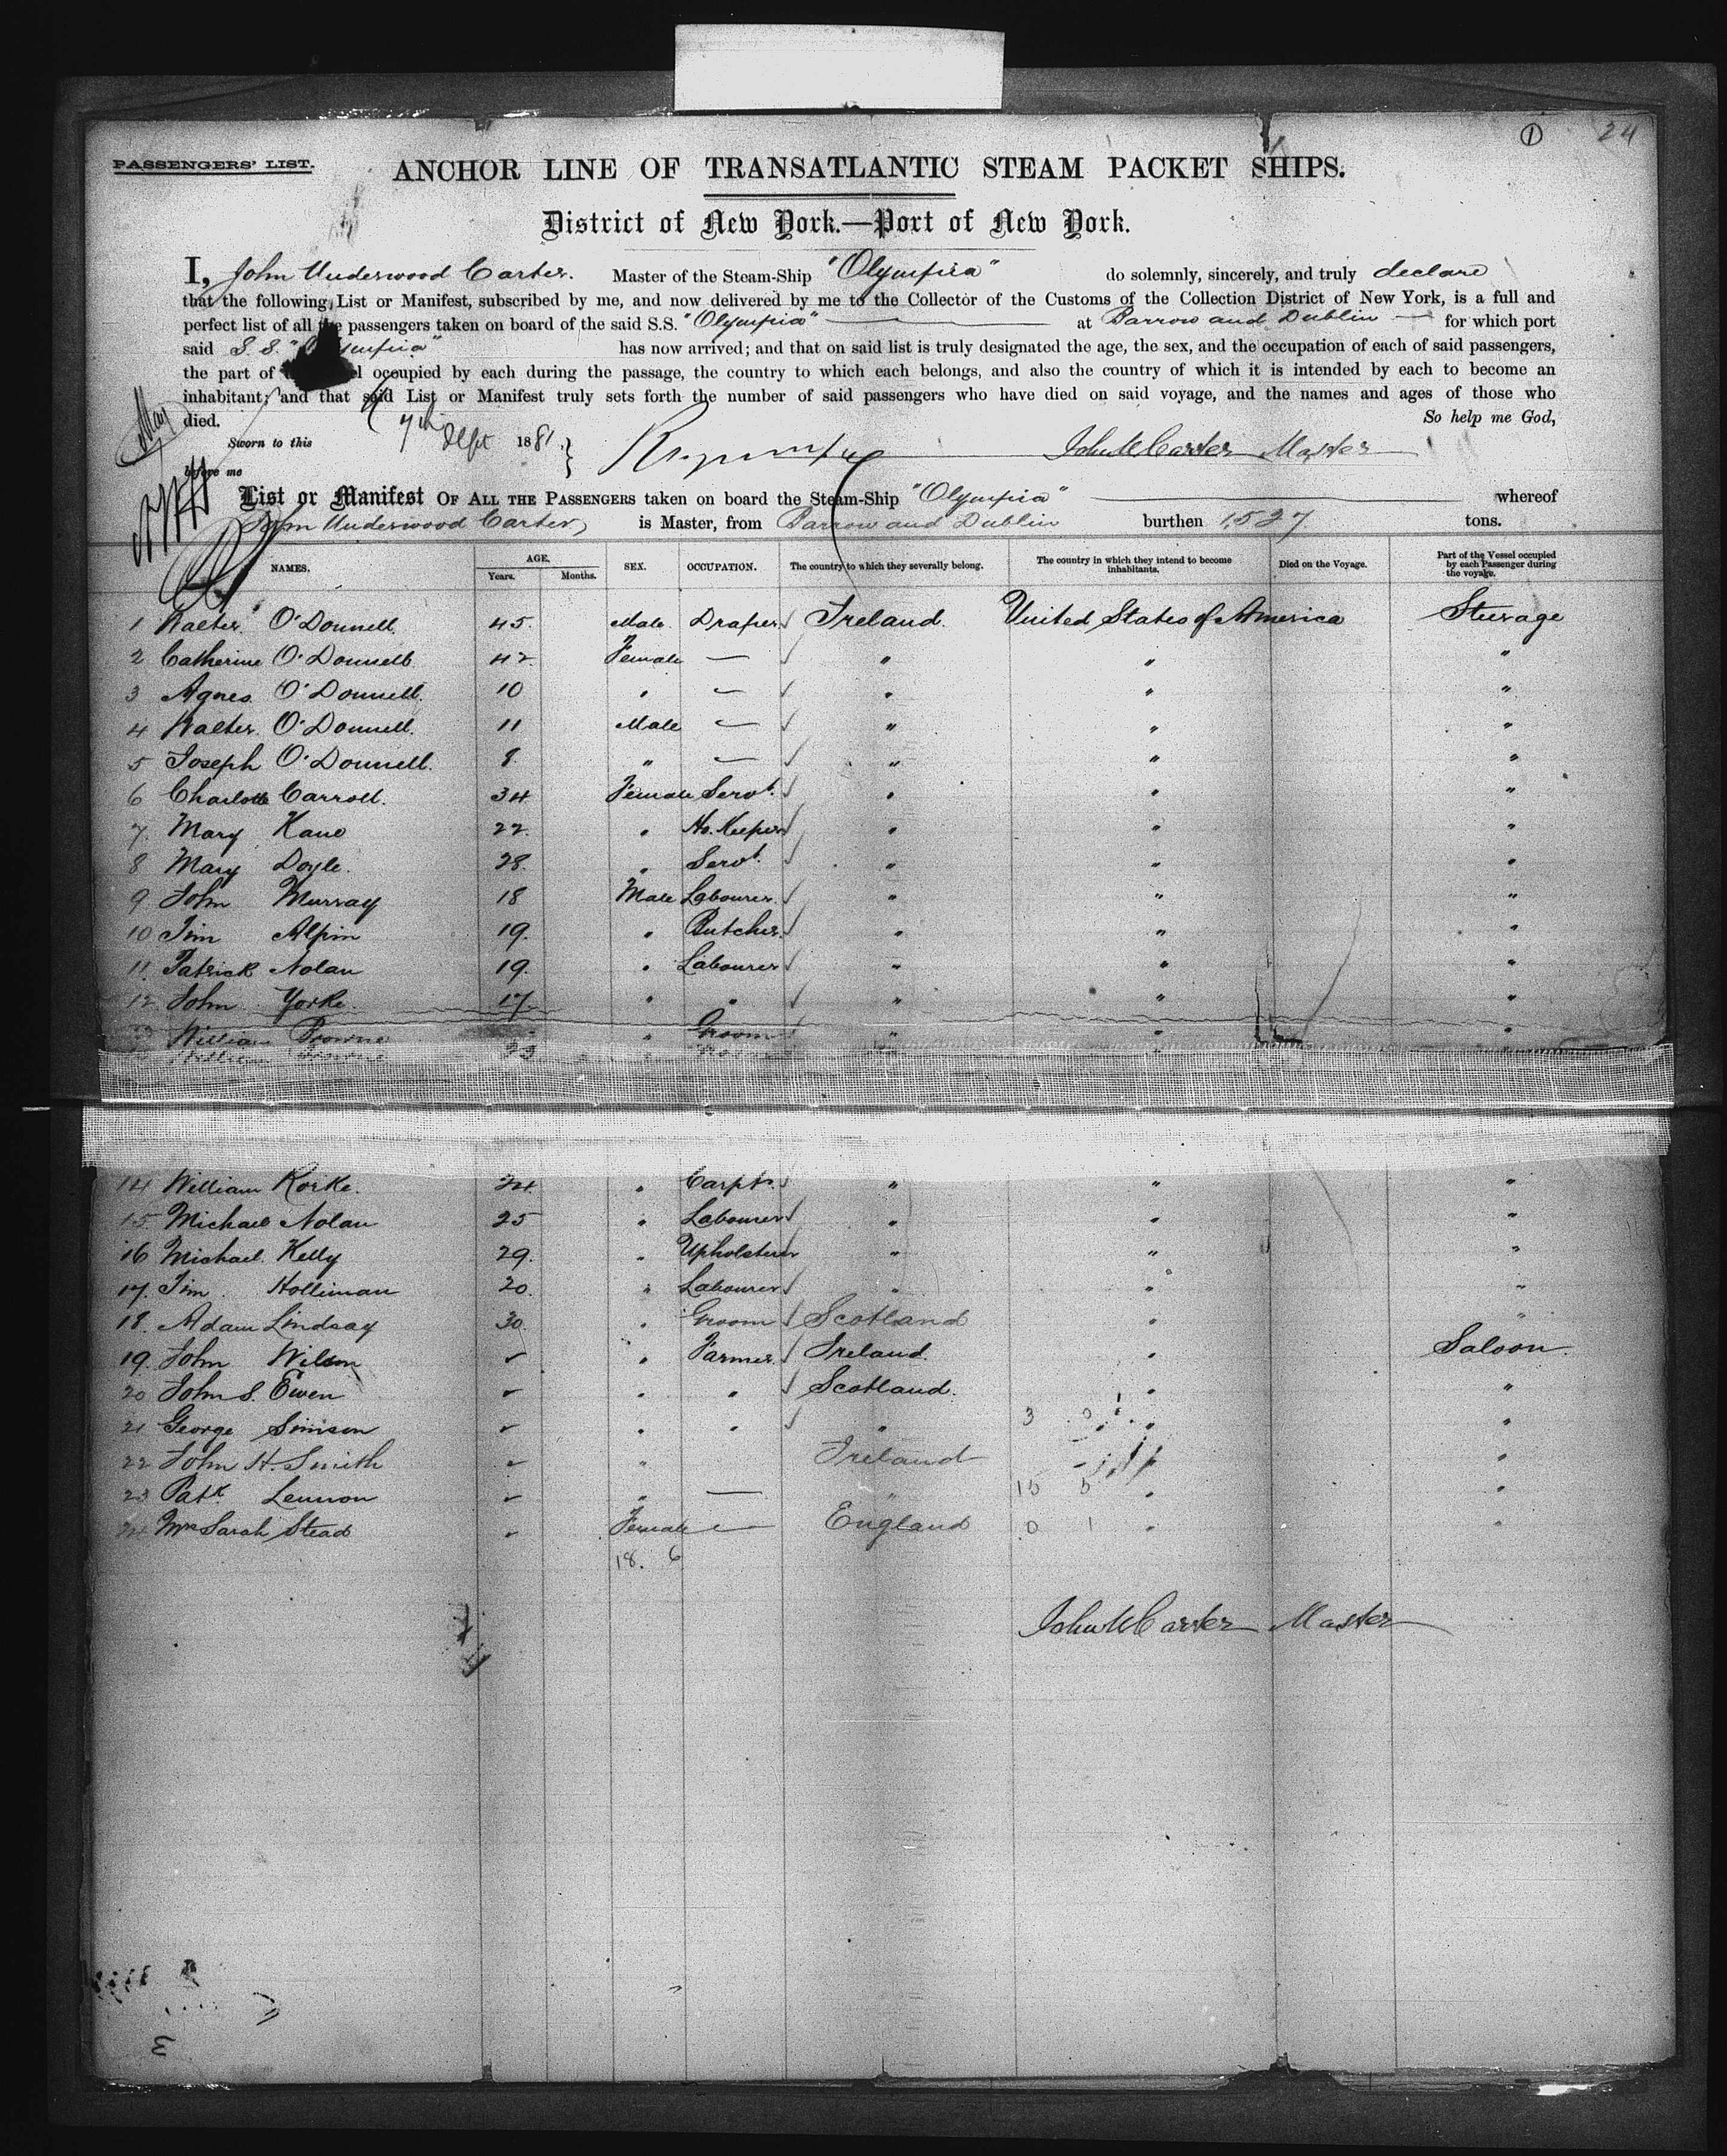 ① 24
PASSENGERS' LIST.
ANCHOR LINE OF TRANSATLANTIC STEAM PACKET SHIPS.
District of New York.—Port of New York.
I, John Underwood Carter. Master of the Steam-Ship "Olympia" do solemnly, sincerely, and truly declare
that the following List or Manifest, subscribed by me, and now delivered by me to the Collector of the Customs of the Collection District of New York, is a full and
perfect list of all the passengers taken on board of the said S.S. "Olympia" at Barrow and Dublin for which port
said S.S. "Olympia" has now arrived; and that on said list is truly designated the age, the sex, and the occupation of each of said passengers,
the part of occupied by each during the passage, the country to which each belongs, and also the country of which it is intended by each to become an
inhabitant; and that said List or Manifest truly sets forth the number of said passengers who have died on said voyage, and the names and ages of those who
died. So help me God,
Sworn to this 7th Sept 1881 John U Carter Master
before me
List or Manifest OF ALL THE PASSENGERS taken on board the Steam-Ship "Olympia" whereof
John Underwood Carter, is Master, from Barrow and Dublin burthen 1,527 tons.
NAMES. AGE. Years. Months. SEX. OCCUPATION. The country to which they severally belong. The country in which they intend to become inhabitants. Died on the Voyage. Part of the Vessel occupied by each Passenger during the voyage.
1 Walter O'Donnell. 45. Male. Draper Ireland. United States of America Steerage
2 Catherine O'Donnell 42 Female — " " "
3 Agnes O'Donnell. 10 " — " " "
4 Walter O'Donnell. 11 Male — " " "
5 Joseph O'Donnell. 8. " — " " "
6 Charlotte Carroll. 34 Female Servt. " " "
7. Mary Kane 22. " Ho. Keeper " " "
8 Mary Doyle. 28. " Servt. " " "
9 John Murray 18 Male Labourer. " " "
10 Jim Alpin 19. " Butcher. " " "
11. Patrick Nolan 19. " Labourer " " "
12. John Yorke. 17. " " " " "
13 William Browne 23 " Groom " " "
14 William Rorke. 24. " Carptr. " " "
15 Michael Nolan 25 " Labourer " " "
16 Michael Kelly 29. " Upholsterer " " "
17. Jim Holliman 20. " Labourer " " "
18. Adam Lindsay 30. " Groom Scotland " "
19. John Wilson ✓ " Farmer. Ireland. " Saloon.
20 John S. Ewen ✓ " " Scotland. " "
21 George Simson ✓ " " " " "
22 John H. Smith ✓ " Ireland " "
23 Patk. Lennon ✓ " — " " "
24 Mrs Sarah Stead ✓ Female — England " "
18. 6
John U Carter Master